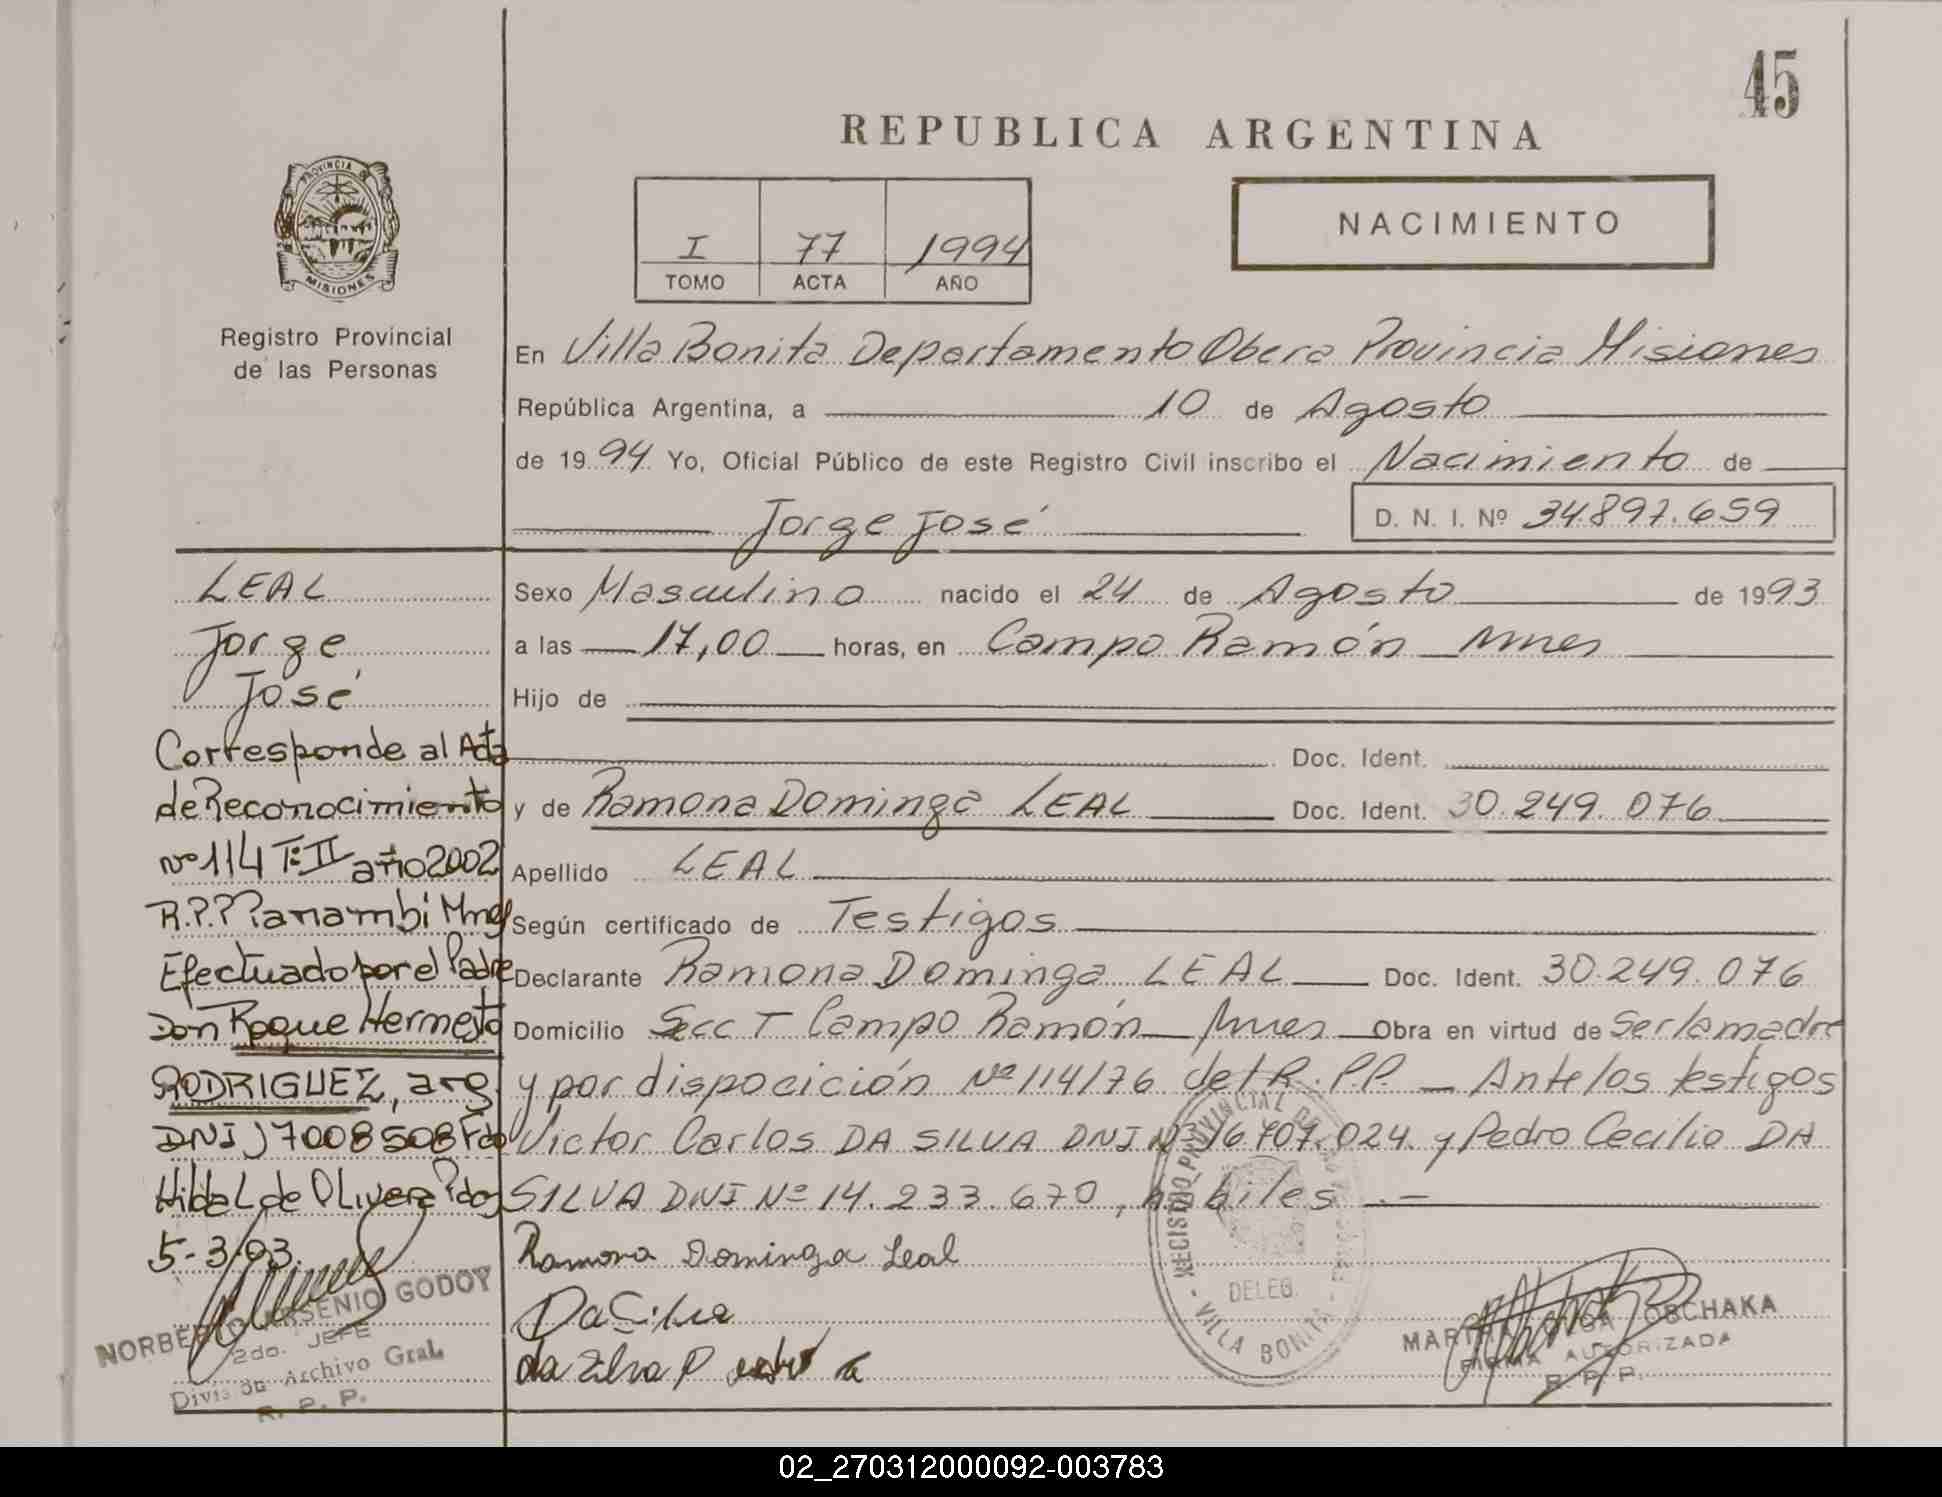 45
REPUBLICA ARGENTINA
I 77 1994
TOMO ACTA AÑO
NACIMIENTO
PROVINCIA DE
MISIONES
Registro Provincial
de las Personas
En Villa Bonita Departamento Obera Provincia Misiones
República Argentina, a 10 de Agosto
de 1994 Yo, Oficial Público de este Registro Civil inscribo el Nacimiento de
Jorge José D. N. I. Nº 34.897.659
LEAL
Jorge
José
Corresponde al Acta
de Reconocimiento
nº 114 T: II año 2002
R.P.P Panambi Mnes
Efectuado por el Padre
Don Roque Hermesto
RODRIGUEZ, arg.
DNI 17008508 Fdo
Hidal de Olivera Pdas
5-3-03.
NORBERTO ARSENIO GODOY
2do. JEFE
División Archivo Gral.
R. P. P.
Sexo Masculino nacido el 24 de Agosto de 1993
a las 17,00 horas, en Campo Ramón Mnes
Hijo de
Doc. Ident.
y de Ramona Dominga LEAL Doc. Ident. 30.249.076
Apellido LEAL
Según certificado de Testigos
Declarante Ramona Dominga LEAL Doc. Ident. 30.249.076
Domicilio Secc T Campo Ramón Mnes Obra en virtud de ser la madre
y por disposición Nº 114/76 del R.P.P. — Ante los testigos
Victor Carlos DA SILVA DNI Nº 16.707.024. y Pedro Cecilio DA
SILVA DNI Nº 14.233.670, hábiles .—
Ramona Dominga Leal
Da Silva
da Silva P
REGISTRO PROVINCIAL DE LAS PERSONAS
DELEG.
- VILLA BONITA -
MARTHA OLGA OBCHAKA
FIRMA AUTORIZADA
R. P. P.
02_270312000092-003783